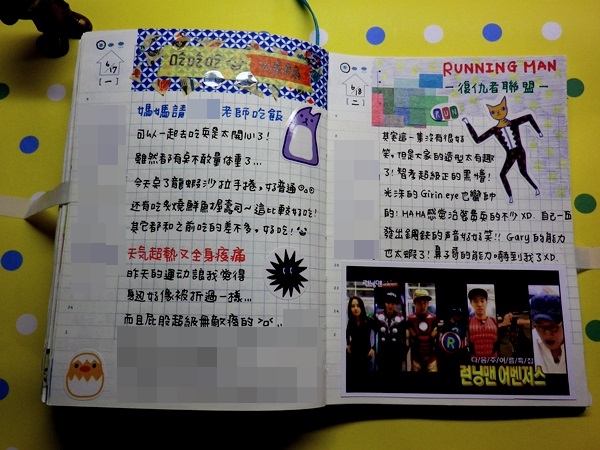 6/17
[一]
媽媽請 老師吃飯
可以一起去吃真是太開心了!
雖然都有點不敢量体重了...
今天点了龍蝦沙拉手捲,好普通
還有吃炙燒鮭魚握壽司~這比較好吃!
其它都和之前吃的差不多,好吃!
天氣超熱又全身痠痛
昨天的運动讓我覺得
身边好像被折過一樣...
而且屁股超級無敵痠的 >o<..
6/18
[二]
RUNNING MAN
-復仇者聯盟-
RUN
其实這一集沒有很好
笑,但是大家的造型太有趣
了!智孝超級正的黑慵!
光洙的Girin eye也蠻帥
的!HAHA感覺沾著番茄的不少XD.自己一直
發出鋼鉄的声音好好笑!! Gary的能力
也太蝦了!鼻子哥的能力嚇到我了XD.
R
다음주 여름특집
런닝맨 어벤져스